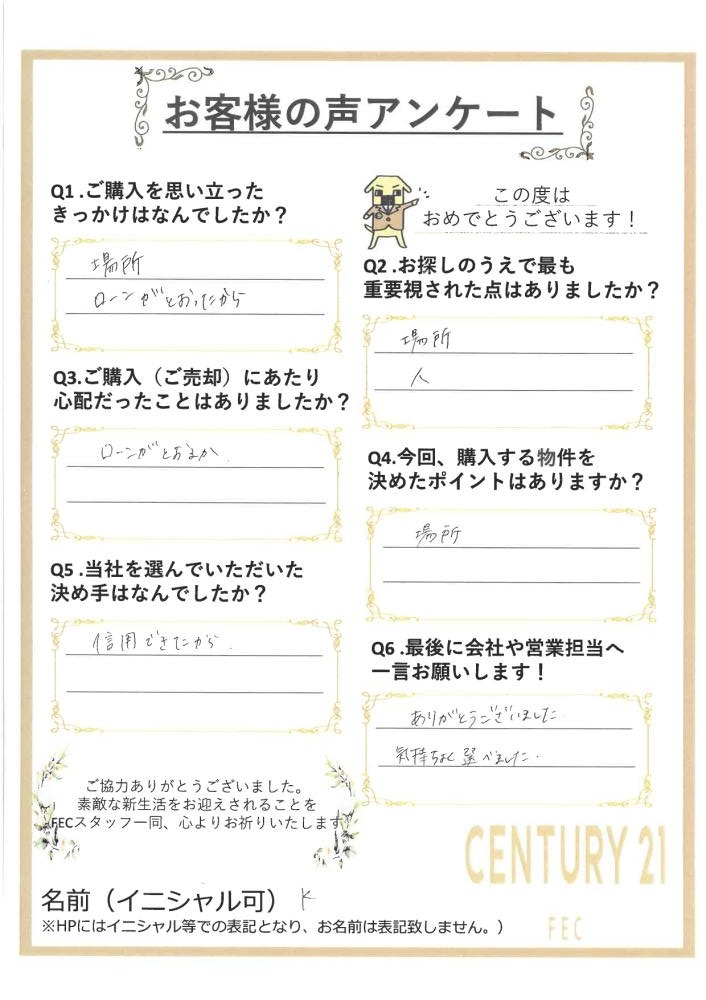 お客様の声アンケート
Q1.ご購入を思い立った
きっかけはなんでしたか？
場所
ローンがとおったから
この度は
おめでとうございます！
Q2.お探しのうえで最も
重要視された点はありましたか？
場所
人
Q3.ご購入（ご売却）にあたり
心配だったことはありましたか？
ローンがとおるか.
Q4.今回、購入する物件を
決めたポイントはありますか？
場所
Q5.当社を選んでいただいた
決め手はなんでしたか？
信用できたから.
Q6.最後に会社や営業担当へ
一言お願いします！
ありがとうございました.
気持ちよく選べました.
ご協力ありがとうございました。
素敵な新生活をお迎えされることを
FECスタッフ一同、心よりお祈りいたします
CENTURY 21
FEC
名前（イニシャル可） K
※HPにはイニシャル等での表記となり、お名前は表記致しません。）